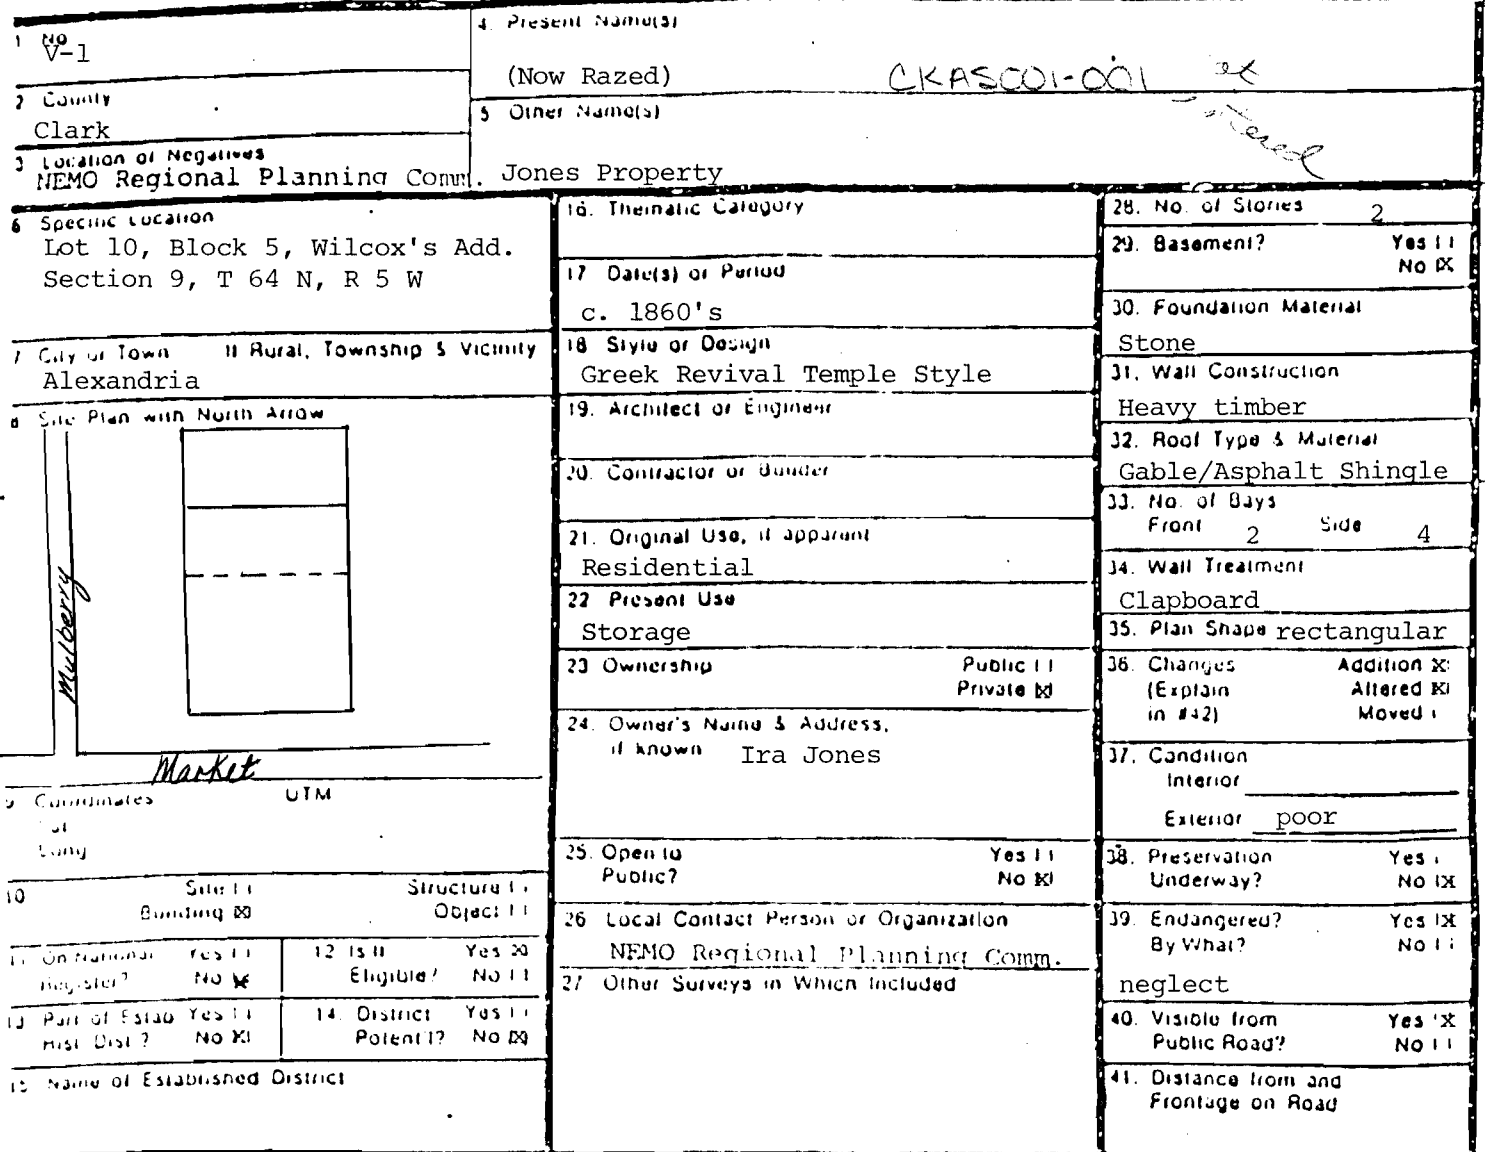 1 No
V-1
2 County
Clark
3 Location of Negatives
NEMO Regional Planning Comm.
4. Present Name(s)
(Now Razed)
CKAS001-001
5 Other Name(s)
Jones Property
6 Specific Location
Lot 10, Block 5, Wilcox's Add.
Section 9, T 64 N, R 5 W
7 City or Town If Rural, Township & Vicinity
Alexandria
8 Site Plan with North Arrow
Mulberry
Market
9 Coordinates UTM
Lat
Long
10 Site [ ] Structure [ ]
Building [X] Object [ ]
11 On National Register? Yes [ ] No [X]
12 Is It Eligible? Yes [X] No [ ]
13 Part of Estab Hist. Dist.? Yes [ ] No [X]
14. District Potent'l? Yes [ ] No [X]
15 Name of Established District
16. Thematic Category
17 Date(s) or Period
c. 1860's
18 Style or Design
Greek Revival Temple Style
19. Architect or Engineer
20. Contractor or Builder
21. Original Use, if apparent
Residential
22 Present Use
Storage
23 Ownership Public [ ]
Private [X]
24. Owner's Name & Address,
if known Ira Jones
25. Open to Public? Yes [ ]
No [X]
26 Local Contact Person or Organization
NEMO Regional Planning Comm.
27 Other Surveys in Which Included
28. No. of Stories 2
29. Basement? Yes [ ]
No [X]
30. Foundation Material
Stone
31. Wall Construction
Heavy timber
32. Roof Type & Material
Gable/Asphalt Shingle
33. No. of Bays
Front 2 Side 4
34. Wall Treatment
Clapboard
35. Plan Shape rectangular
36. Changes Addition [X]
(Explain Altered [X]
in #42) Moved [ ]
37. Condition
Interior
Exterior poor
38. Preservation Yes [ ]
Underway? No [X]
39. Endangered? Yes [X]
By What? No [ ]
neglect
40. Visible from Yes [X]
Public Road? No [ ]
41. Distance from and
Frontage on Road